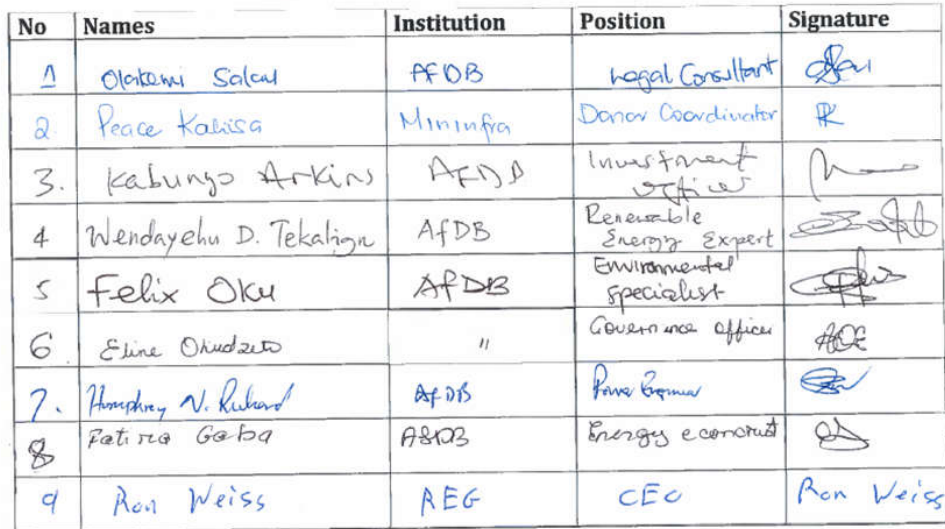 No Names Institution Position Signature
1 Olakemi Salau AFDB Legal Consultant
2 Peace Kalisa Mininfra Donor Coordinator PK
3. Kabungo Arkins AFDB Investment
officer
4 Wendayehu D. Tekalign AfDB Renewable
Energy Expert
5 Felix Oku AfDB Environmental
specialist
6 Eline Okudzeto " Governance officer AOE
7. Humphrey N. Richard AfDB Power Engineer
8 Gaba AfDB Energy economist
9 Ron Weiss REG CEO Ron Weiss